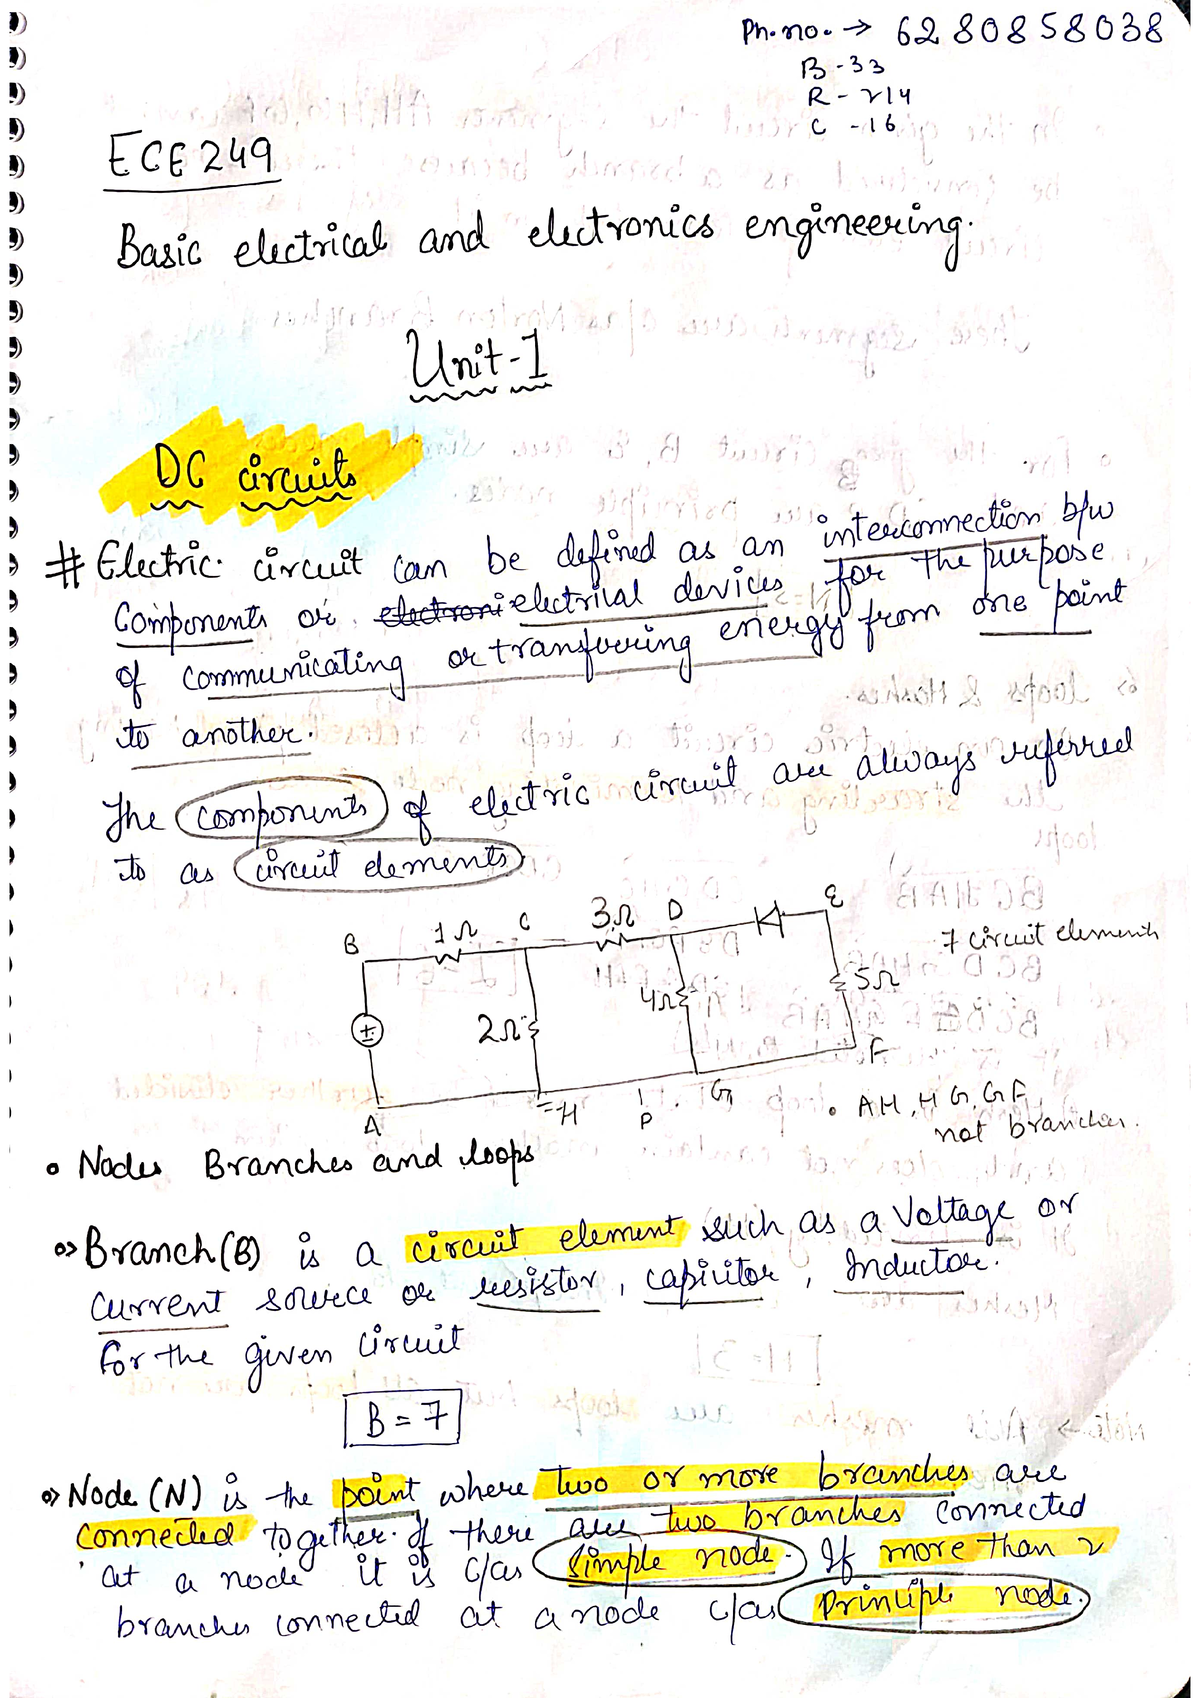 Ph. no. → 6280858038
B - 33
R - 214
C - 16
ECE 249
Basic electrical and electronics engineering.
Unit-1
DC circuits
# Electric circuit can be defined as an interconnection b/w
Components or electroni electrical devices for the purpose
of communicating or transferring energy from one point
to another.
The components of electric circuit are always referred
to as circuit elements
B 1Ω C 3Ω D E
7 circuit elements
± 2Ω 4Ω 5Ω
A H P G F
• AH, HG, GF,
not branches.
• Nodes Branches and loops
Branch (B) is a circuit element such as a Voltage or
current source or resistor, capicitor, Inductor.
for the given circuit
B = 7
Node (N) is the point where two or more branches are
connected together. If there are two branches connected
at a node it is c/as simple node. If more than 2
branches connected at a node c/as principle node.